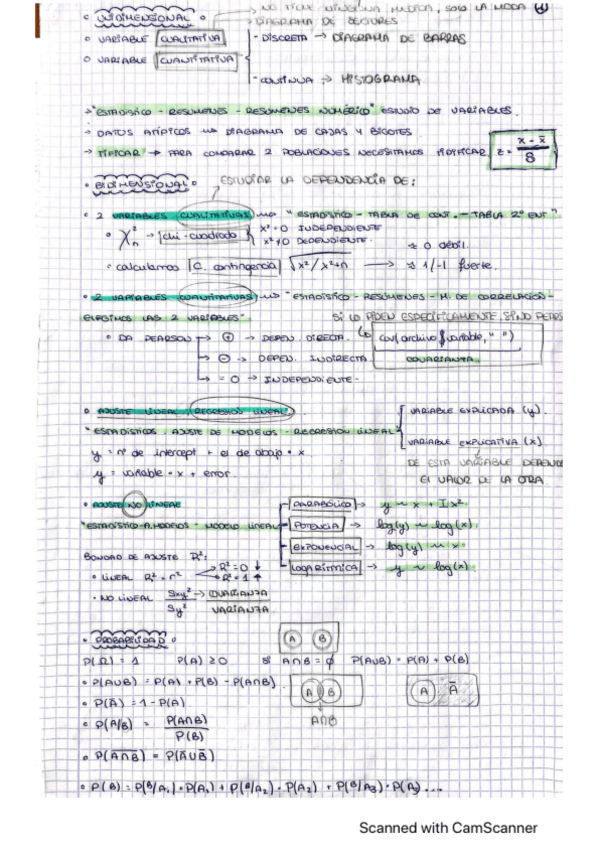 NO TIENE NINGUNA MEDIDA, SOLO LA MODA
UNIDIMENSIONAL
DIAGRAMA DE SECTORES
VARIABLE CUALITATIVA
- DISCRETA → DIAGRAMA DE BARRAS
VARIABLE CUANTITATIVA
- CONTINUA → HISTOGRAMA
→ "ESTADÍSTICO - RESÚMENES - RESÚMENES NUMÉRICO" ESTUDIO DE VARIABLES.
→ DATOS ATÍPICOS → DIAGRAMA DE CAJAS Y BIGOTES.
→ TIPIFICAR → PARA COMPARAR 2 POBLACIONES NECESITAMOS TIPIFICAR z = x - x̄ / 8
BIDIMENSIONAL
ESTUDIAR LA DEPENDENCIA DE:
2 VARIABLES CUALITATIVAS → "ESTADÍSTICO - TABLA DE CONT. - TABLA 2º ENT"
χ²n → chi-cuadrado x² = 0 INDEPENDIENTE
x² ≠ 0 DEPENDIENTE.
≈ 0 débil.
calculamos C. contingencia √x²/x²+n → ≈ 1/-1 fuerte.
2 VARIABLES CUANTITATIVAS → "ESTADÍSTICO - RESÚMENES - M. DE CORRELACIÓN -
ELEGIMOS LAS 2 VARIABLES"
SI LO PIDEN ESPECÍFICAMENTE, SINO PEARS
DA PEARSON → + → DEPEN. DIRECTA.
cov(archivo$variable, " ")
→ - → DEPEN. INDIRECTA
COVARIANZA
→ = 0 → INDEPENDIENTE.
AJUSTE LINEAL (REGRESIÓN LINEAL)
VARIABLE EXPLICADA (y).
"ESTADÍSTICOS - AJUSTE DE MODELOS - REGRESIÓN LINEAL"
VARIABLE EXPLICATIVA (x)
y = nº de intercept + el de abajo · x
DE ESTA VARIABLE DEPENDE
y = variable · x + error.
EL VALOR DE LA OTRA.
AJUSTE NO LINEAL
PARABÓLICO → y ~ x + I x².
"ESTADÍSTICO - A. MODELOS - MODELO LINEAL"
POTENCIA → log(y) ~ log(x).
EXPONENCIAL → log(y) ~ x.
BONDAD DE AJUSTE R²:
LOGARÍTMICA → y ~ log(x).
LINEAL R² = r² R² = 0 ↓
R² = 1 ↑
NO LINEAL Sxy² → COVARIANZA
Sy² VARIANZA
PROBABILIDAD
A B
P(Ω) = 1 P(A) ≥ 0 si A∩B = ∅ P(A∪B) = P(A) + P(B)
P(A∪B) = P(A) + P(B) - P(A∩B)
A B A Ā
P(Ā) = 1 - P(A)
A∩B
P(A/B) = P(A∩B) / P(B)
P(A̅∩̅B̅) = P(Ā∪B̄)
P(B) = P(B/A₁) · P(A₁) + P(B/A₂) · P(A₂) + P(B/A₃) · P(A₃) ....
Scanned with CamScanner